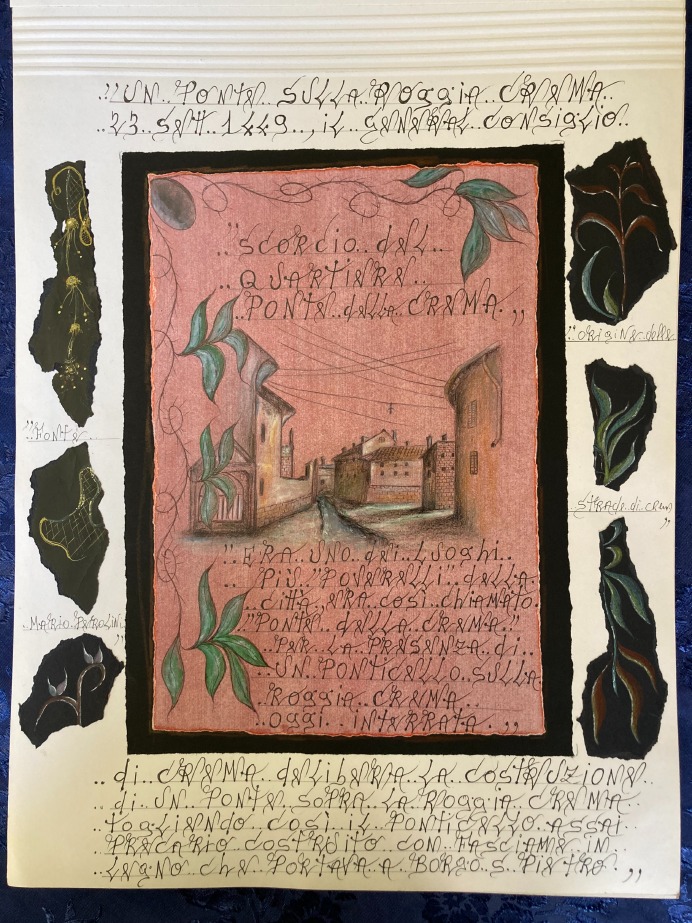 "UN..PONTE..SULLA..ROggiA..CREMA..
..23..SETT..1449..,iL..GENERAL..CONSigLiO..
"SCORCiO..dEL..
..QUARTiERE..
..PONTE..dELLA..CREMA.."
"FONTE..
"ORigiNE..dELLE
..STRAdE..di..CREMA
"
"..ERA..UNO..dEi..LUOghi..
..PiÙ.."POVERELLi"..dELLA..
..CiTTÀ..ERA..COSÌ..ChiAMATO..
"PONTE..dELLA..CREMA.."
..PER..LA..PRESENZA..di..
..UN..PONTiCELLO..SULLA
..ROggiA..CREMA..
..OggI..iNTERRATA.."
..MARiO..PEROLiNi
"
..di..CREMA..dELibERA..LA..COSTRUZiONE..
..di..UN..PONTE..SOPRA..LA..ROggiA..CREMA..
..TOgLiENdO..COSÌ..iL..PONTiCELLO..ASSAi..
..PRECARiO..COSTRUiTO..CON..FASCiAME..iN..
..LEgNO..ChE..PORTAVA..A..BORgO..S..PiETRO.."